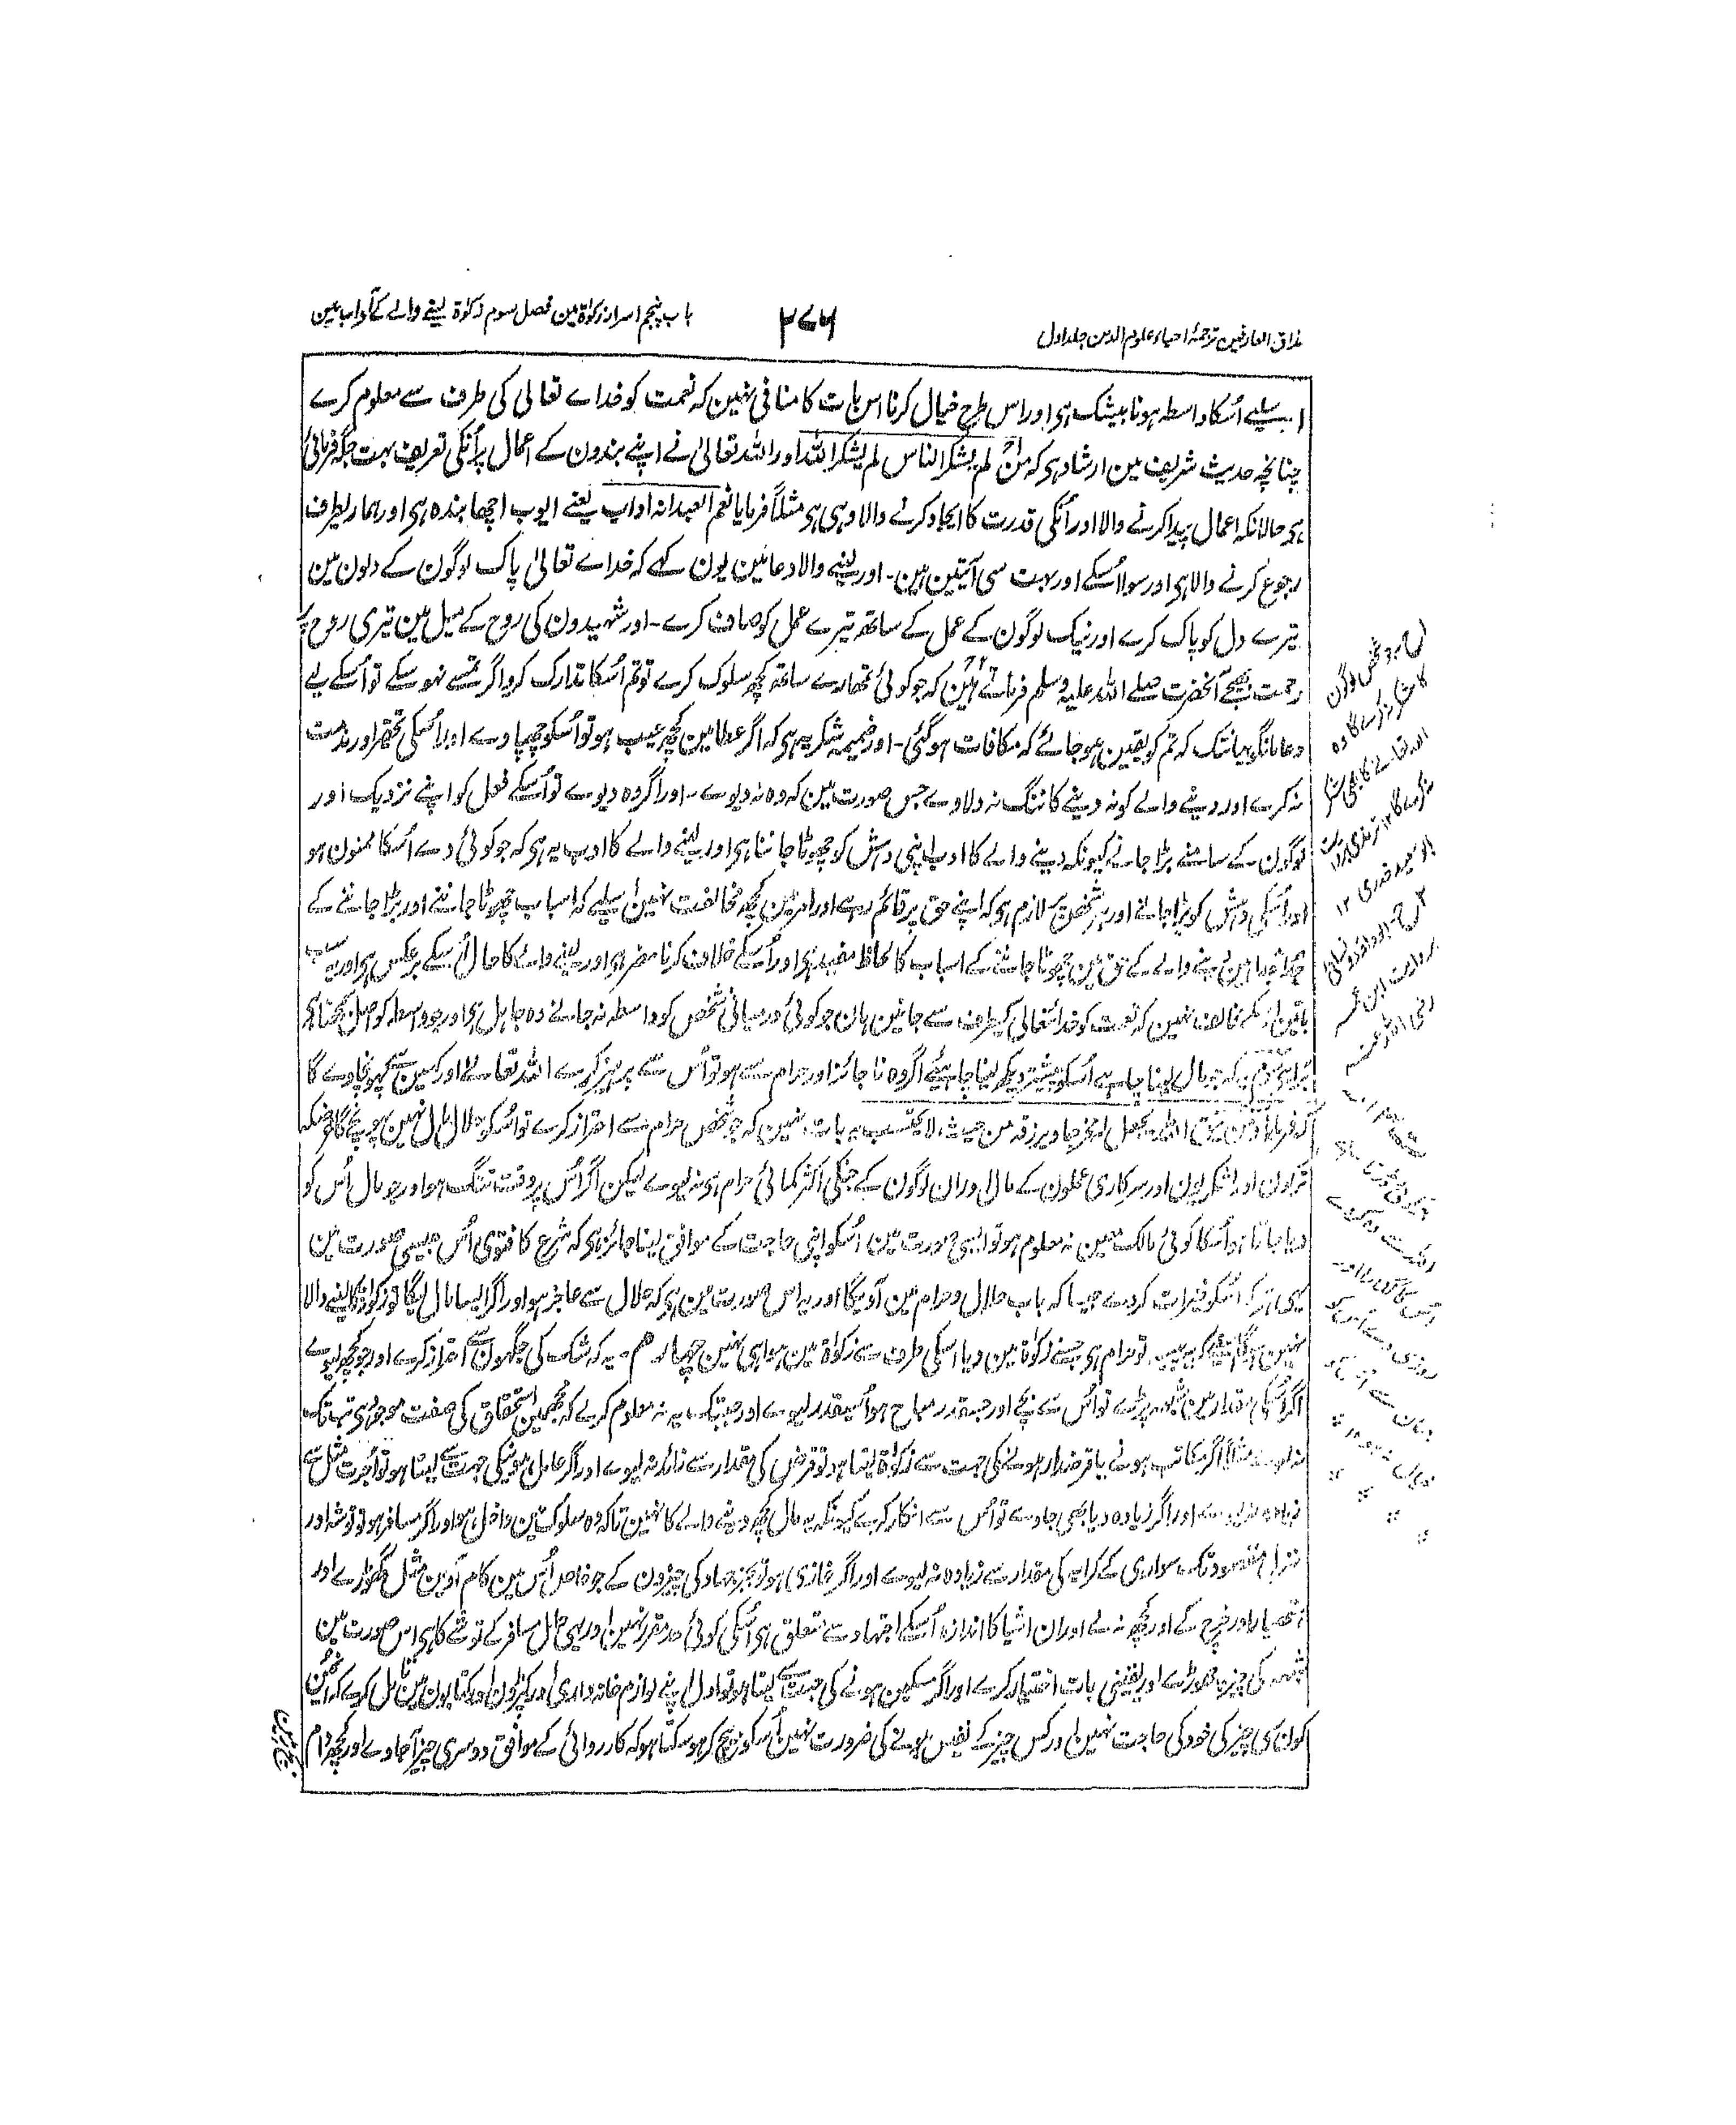 مذاق العارفین ترجمۂ احیاء علوم الدین جلد اول
۲۷۶
باب پنجم اسرار زکوٰۃ مین فصل سوم زکوٰۃ لینے والے کے آداب مین
اسیلیے اُسکا واسطہ ہونا بیشک ہی اور اس طرح خیال کرنا اس بات کا منافی نہین کہ نعمت کو خداے تعالی کی طرف سے معلوم کرے
چنانچہ حدیث شریف مین ارشاد ہی کہ من لم یشکر الناس لم یشکر اللہ اور اللہ تعالیٰ نے اپنے بندون کے اعمال پر اُنکی تعریف بہت جگہ فرمائی
ہی حالانکہ اعمال پیدا کرنے والا اور اُنکی قدرت کا ایجاد کرنے والا وہی ہی مثلاً فرمایا نعم العبد انہ اواب یعنے ایوب اچھا بندہ ہی اور ہماریطرف
رجوع کرنے والا ہی اور سوا اُسکے اور بہت سی آیتین ہین۔ اور لینے والا دعا مین یون کہے کہ خداے تعالیٰ پاک لوگون کے دلون مین
تیرے دل کو پاک کرے اور نیک لوگون کے عمل کے ساتھ تیرے عمل کو صاف کرے۔ اور شہیدون کی روح کے میل مین تیری روح پر
رحمت بھیجے آنحضرت صلے اللہ علیہ وسلم فرماتے ہین کہ جو کوئی تمھارے ساتھ کچھ سلوک کرے تو تم اُسکا تدارک کرو اگر تمسے نہو سکے تو اُسکے لیے
دعا مانگو یہانتک کہ تم کو یقین ہو جائے کہ مکافات ہوگئی۔ اور ضمیمہ شکر یہ ہی کہ اگر عطا مین کچھ عیب ہو تو اُسکو چھپاوے اور اُسکی تحقیر اور مذمت
نہ کرے اور دینے والے کو نہ دینے کا ننگ نہ دلاوے جس صورت مین کہ وہ نہ دیوے۔ اور اگر وہ دیوے تو اُسکے فعل کو اپنے نزدیک اور
لوگون کے سامنے بڑا جانے کیونکہ دینے والے کا ادب اپنی دہش کو چھوٹا جاننا ہی اور لینے والے کا ادب یہ ہی کہ جو کوئی دے اُسکا ممنون ہو
اور اُسکی دہش کو بڑا جانے اور ہر شخص پر لازم ہی کہ اپنے حق پر قائم رہے اور اسمین کچھ مخالفت نہین اسلیے کہ اسباب چھوٹا جاننے اور بڑا جاننے کے
جدا جدا ہین دینے والے کے حق مین چھوٹا جاننے کے اسباب کا لحاظ مفید ہی اور اُسکے خلاف کرنا مضر ہی اور لینے والے کا حال اُسکے برعکس ہی اور یہ سب
باتین اسکے مخالف نہین کہ نعمت کو خدا تعالی کیطرف سے جانین ہان جو کوئی درمیانی شخص کو واسطہ نہ جانے وہ جاہل ہی اور جو واسطہ کو اصل سمجھتا ہی
کہ جو مال لینا چاہے اُسکو پیشتر دیکھ لینا چاہیے اگر وہ ناجائز اور حرام سے ہو تو اُس سے پرہیز کرے اللہ تعالےٰ اور کہین سے پہونچاوے گا
ومن یتق اللہ یجعل لہ مخرجا ویرزقہ من حیث لا یحتسب یہ بات نہین کہ جو شخص حرام سے احتراز کرے تو اُسکو حلال مال نہین پہونچے گا غرضکہ
ترکون اور لشکریون اور سرکاری عملون کے مال اور ان لوگون کے جنکی اکثر کمائی حرام ہی نہ لیوے لیکن اگر اُس پر وقت تنگ ہو اور جو مال اُس کو
دیا جاتا ہو اُسکا کوئی مالک معین نہ معلوم ہو تو ایسی صورت مین اُسکو اپنی حاجت کے موافق لینا جائز ہی کہ شرع کا فتوی اُس جیسی صورت مین
یہی ہی کہ اُسکو خیرات کردے جیسا کہ باب حلال و حرام مین آویگا اور یہ اس صورت مین ہی کہ حلال سے عاجز ہو اور اگر ایسا مال لیگا تو زکوٰۃ کا لینے والا
نہین ہوگا تو حرام ہی جسنے زکوٰۃ مین دیا اسکی طرف سے زکوٰۃ مین ہوا ہی نہین چہارم۔ یہ کہ شک کی جگہون سے احتراز کرے اور جو کچھ لیوے
اگر اُسکی مقدار مین شبہہ پڑے تو اُس سے بچے اور جسقدر مباح ہو اُسیقدر لیوے اور جبتک یہ نہ معلوم کرلے کہ مجھمین استحقاق کی صفت موجود ہی تب تک
نہ لیوے مثلاً اگر مکاتب ہونے یا قرضدار ہونے کی جہت سے زکوٰۃ لیتا ہو تو قرض کی مقدار سے زائد نہ لیوے اور اگر عامل ہونیکی جہت سے لیتا ہو تو اُجرت مثل سے
زیادہ نہ لیوے اور اگر زیادہ دیا بھی جاوے تو اُس سے انکار کرے کیونکہ یہ مال کچھ دینے والے کا نہین تاکہ وہ سلوک مین داخل ہو اور اگر مسافر ہو تو توشہ اور
منزل مقصود تک سواری کے کرایہ کی مقدار سے زیادہ نہ لیوے اور اگر غازی ہو تو بجز جہاد کی چیزون کے جو خاص اُس مین کام آوین مثل گھوڑے اور
ہتھیار اور خرچ کے اور کچھ نہ لے اور ان اشیا کا اندازہ اُسکے اجتہاد سے متعلق ہی اُسکی کوئی حد مقرر نہین اور یہی حال مسافر کے توشے کا ہی اس صورت مین
شبہہ کی چیز چھوڑے اور یقینی بات اختیار کرے اور اگر مسکین ہونے کی جہت سے لیتا ہو تو اول اپنے لوازم خانہ داری اور کپڑون اور کتابون مین تامل کرے کہ اُنمین
کون سی چیز کی خود کی حاجت نہین اور کس چیز کے نفیس ہونے کی ضرورت نہین اُسکو بیچ کر ہو سکتا ہو کہ کارروائی کے موافق دوسری چیز آجاوے اور کچھ دام
جو شخص لوگون
کا شکر نہ کرے گا وہ
اللہ تعالےٰ کا بھی شکر
نہ کرے گا ۱۲ ترمذی بروایت
ابو سعید خدری ۱۲
ابو داؤد و نسائی
بروایت ابن عمر
رضی اللہ عنہ